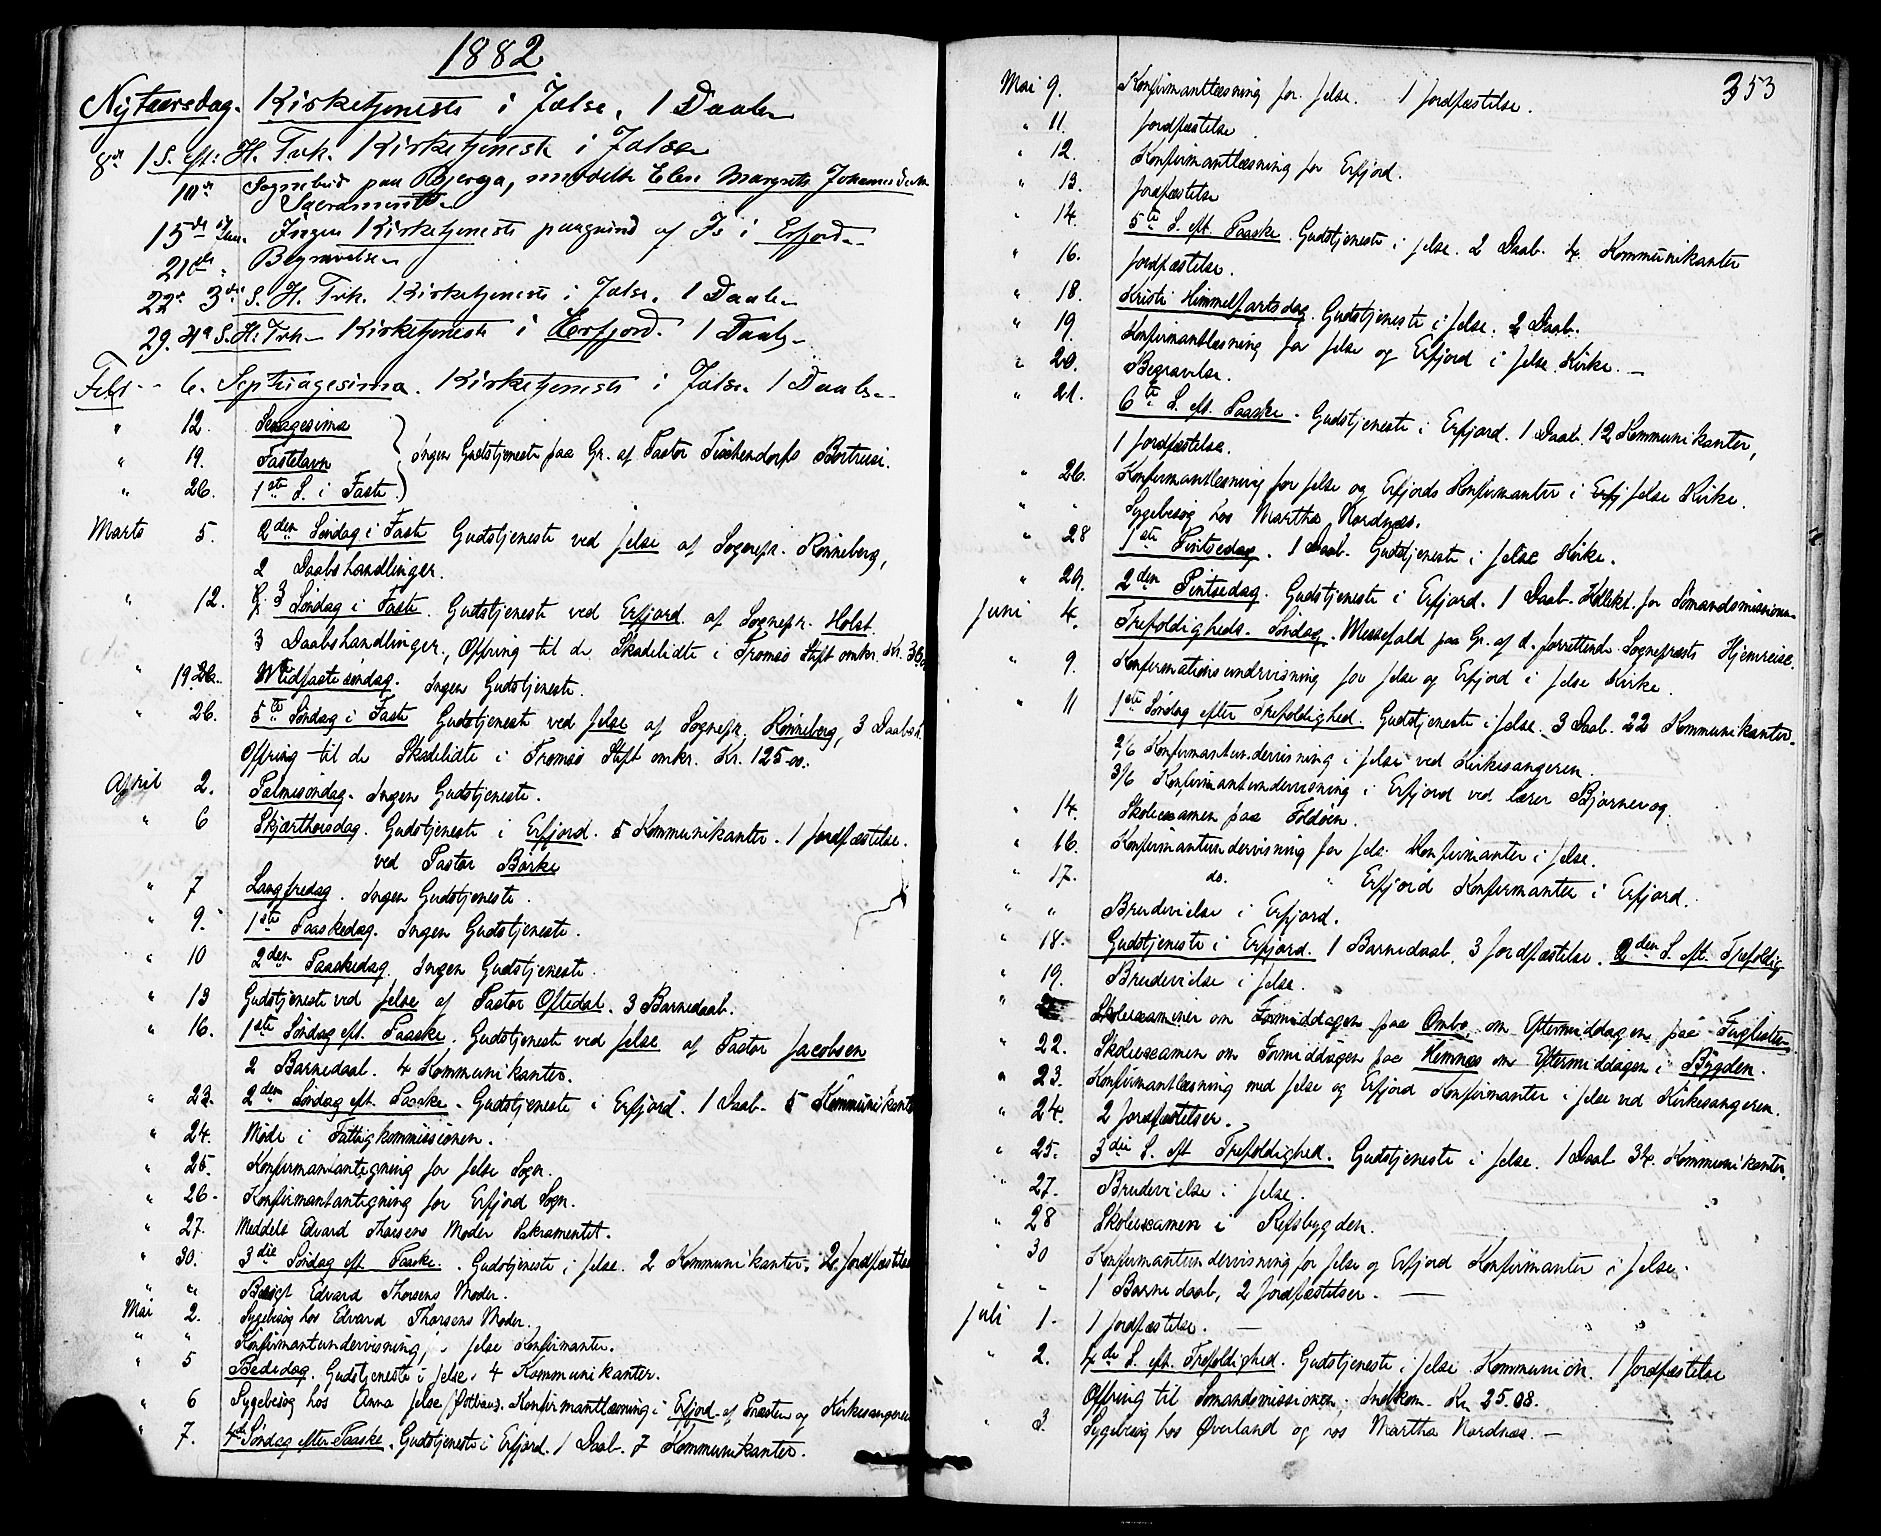 1882
Nytaarsdag. Kirketjeneste i Jælse. 1 Daab
8de 1 S. eft: H. Trk. Kirketjeneste i Jælse
10de Sognebud paa Bjerga, meddelte Elen Margrete Johannesdatter
Sacramentet
15de Ingen Kirketjeneste paagrund af Is i Erfjord
21de Begravelse
22de 3die S. H. Trk. Kirketjeneste i Jælse. 1 Daab
29. 4de S. H. Trk. Kirketjeneste i Herfjord. 1 Daab
Febr 6. Septuagesima. Kirketjeneste i Jælse 1 Daab
" 12. Sexagesima
" 19. Fastelavn } Ingen Gudstjeneste paa Gr. af Pastor Tischendorfs Bortreise.
" 26. 1ste S. i Faste
Marts 5. 2den Søndag i Faste Gudstjeneste ved Jelse af Sognepr. Rønneberg,
2 Daabshandlinger.
" 12. 3 Søndag i Faste. Gudstjeneste ved Erfjord af Sognepr. Holst.
3 Daabshandlinger, Offring til de Skadelidte i Tromsø Stift omkr. Kr.
" 19 Midfastesøndag. Ingen Gudstjeneste.
" 26. 5te Søndag i Faste Gudstjeneste ved Jelse af Sognepr. Rønneberg, 3 Daabsh.
Offring til de Skadelidte i Tromsø Stift omkr. Kr. 125-00.
April 2. Palmesøndag. Ingen Gudstjeneste.
" 6 Skjærthorsdag. Gudstjeneste i Erfjord. 5 Kommunikanter. 1 Jordfæstelse.
ved Pastor Børke
" 7 Langfredag. Ingen Gudstjeneste.
" 9. 1ste Paaskedag. Ingen Gudstjeneste.
" 10 2den Paaskedag, Ingen Gudstjeneste.
" 13 Gudstjeneste ved Jelse af Pastor Oftedal. 3 Barnedaab.
" 16. 1ste Søndag eft. Paaske. Gudstjeneste ved Jelse af Pastor Jacobsen
2 Barnedaab. 4 Kommunikanter.
" 23. 2den Søndag eft. Paaske. Gudstjeneste i Erfjord. 1 Daab. 5 Kommunikanter
" 24. Møde i Fattigkommissionen.
" 25. Konfirmantantegning for Jelse Sogn.
" 26. Konfirmantantegning for Erfjord Sogn.
" 27. Meddelt Edvard Thorsens Moder Sakramentet.
" 30. 3die Søndag eft. Paaske. Gudstjeneste i Jelse. 2 Kommunikanter. 2 Jordfæstelse
" " Besøgt Edvard Thorsens Moder.
Mai 2. Sygebesøg hos Edvard Thorsens Moder.
" " Konfirmantundervisning, Jelse Konfirmanter.
" 5 Bededag. Gudstjeneste i Jelse. 4 Kommunikanter.
" 6 Sygebesøg hos Anna Jelse. Konfirmantlæsning i Erfjord af Præsten og Kirkesangeren
" 7. 4de Søndag efter Paaske. Gudstjeneste i Erfjord. 1 Daab. 7 Kommunikanter.
353
Mai 9. Konfirmantlæsning for Jelse. 1 Jordfæstelse.
" 11. Jordfæstelse
" 12. Konfirmantlæsning for Erfjord.
" 13. Jordfæstelse
" 14. 5te S. eft. Paaske. Gudstjeneste i Jelse. 2 Daab. 4 Kommunikanter
" 16. Jordfæstelse.
" 18. Kristi Himmelfartsdag. Gudstjeneste i Jelse. 2 Daab.
" 19. Konfirmantlæsning for Jelse og Erfjord i Jelse Kirke. —
" 20. Begravelse.
" 21. 6te S. eft. Paaske. Gudstjeneste i Erfjord. 1 Daab. 12 Kommunikanter,
1 Jordfæstelse.
" 26. Konfirmantlæsning for Jelse og Erfjords Konfirmanter i Erfj Jelse Kirke.
" " Sygebesøg hos Martha Nordnæs.
" 28 1ste Pintsedag. 1 Daab. Gudstjeneste i Jelse Kirke.
" 29. 2den Pintsedag. Gudstjeneste i Erfjord. 1 Daab. Kollekt. for Sømandsmissionen
Juni 4. Trefoldigheds-Søndag. Messefald paa Gr. af d. forrettende Sognepræsts Hjemreise.
" 9. Konfirmationsundervisning for Jelse og Erfjord i Jelse Kirke.
" 11 1ste Søndag efter Trefoldighed. Gudstjeneste i Jelse. 3 Daab. 22 Kommunikanter.
2/6 Konfirmantundervisning i Jelse ved Kirkesangeren.
3/6 Konfirmantundervisning i Erfjord ved Lærer Bjørnevog.
" 14. Skoleexamen paa Foldøen.
" 16. Konfirmantundervisning for Jelse Konfirmanter i Jelse.
" 17. do. " Erfjord Konfirmanter i Erfjord.
" " Brudevielse i Erfjord.
" 18. Gudstjeneste i Erfjord. 1 Barnedaab, 3 Jordfæstelse. 2den S. eft. Trefoldig
" 19. Brudevielse i Jelse.
" Skoleexaminer om Formiddagen paa Ombo, om Eftermiddagen paa
" 22. Skoleexamen om Formiddagen paa Hemnæs om Eftermiddagen i Bygden.
" 23. Konfirmantlæsning med Jelse og Erfjord Konfirmanter i Jelse ved Kirkesangeren.
" 24. 2 Jordfæstelser.
" 25. 3die S. eft Trefoldighed. Gudstjeneste i Jelse. 1 Daab 34 Kommunikanter.
" 27. Brudevielse i Jelse.
" 28 Skoleexamen i Refsbygden.
" 30 Konfirmantundervisning for Jelse og Erfjord Konfirmanter i Jelse.
" " 1 Barnedaab, 2 Jordfæstelser. —
Juli 1. 1 Jordfæstelse. —
" 2. 4de S. eft. Trefoldighed. Gudstjeneste i Jelse Kommunion. 1 Jordfæstelse
Offring til Sømandsmissionen. Indkom. Kr. 25.08.
" 3. Sygebesøg hos Øverland og hos Martha Nordnæs. —